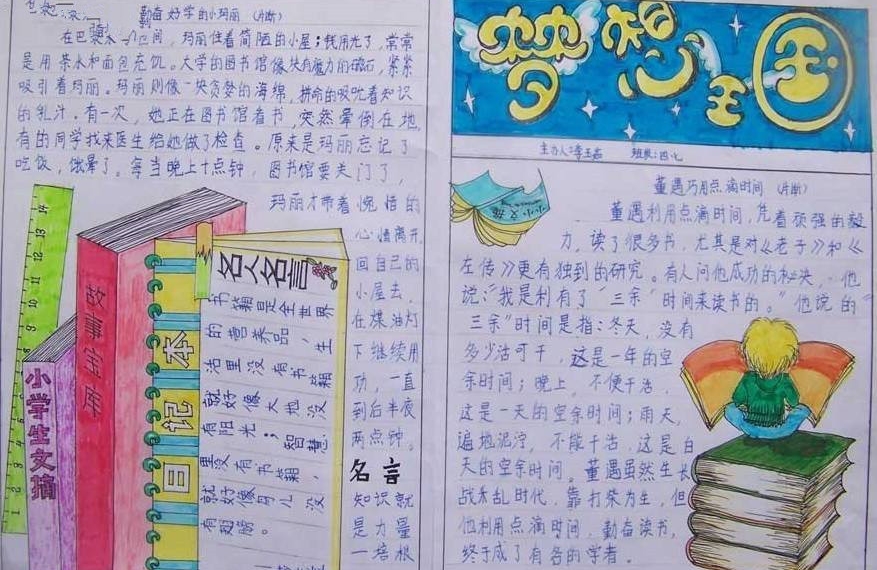 勤奋好学的小玛丽（片断）
玛丽住着简陋的小屋；钱用光了，常常
是用茶水和面包充饥。大学的图书馆像块有魔力的磁石，紧紧
吸引着玛丽。玛丽则像一块贪婪的海绵，拼命的吸吮着知识
的乳汁。有一次，她正在图书馆看书，突然晕倒在地，
有的同学找来医生给她做了检查。原来是玛丽忘记了
吃饭，饿晕了。每当晚上十点钟，图书馆要关门了，
玛丽才带着惋惜的
心情离开，
回自己的
小屋去，
在煤油灯
下继续用
功，一直
到后半夜
两点钟。
名言
知识就
是力量
一培根
故事宝库
小学生文摘
日记本
名人名言
书籍是全世界
的营养品，生
活里没有书籍
就好像大地没
有阳光；智慧
里没有书籍，
就好像鸟儿没
有翅膀。
1 2 3 8 9 10 11 12 13 14
梦想王国
主办人:李玉茹 班级:四.七
小小文摘
董遇巧用点滴时间（片断）
董遇利用点滴时间，凭着顽强的毅
力，读了很多书，尤其是对《老子》和《
左传》更有独到的研究。有人问他成功的秘诀，他
说：“我是利有了“三余”时间来读书的。”他说的“
三余”时间是指：冬天，没有
多少活可干，这是一年的空
余时间；晚上，不便干活，
这是一天的空余时间；雨天，
遍地泥泞，不能干活，这是白
天的空余时间。董遇虽然生长
战禾乱时代，靠打柴为生，但
他利用点滴时间，勤奋读书，
终于成了有各的学者。